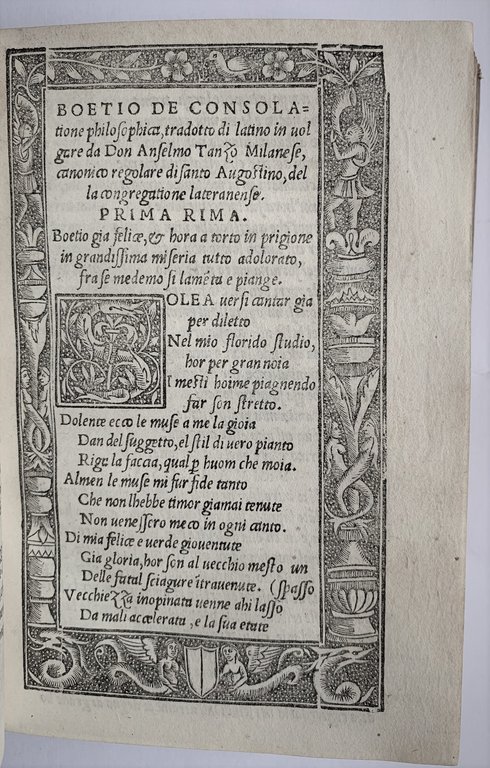 BOETIO DE CONSOLA=
tione philosophica, tradotto di latino in uol
gare da Don Anselmo Tanzo Milanese,
canonico regolare di santo Augostino, del
la congregatione lateranense.
PRIMA RIMA.
Boetio gia felice, & hora a torto in prigione
in grandissima miseria tutto adolorato,
fra se medemo si lamẽta e piange.
SOLEA uersi cantar gia
per diletto
Nel mio florido studio,
hor per gran noia
I mesti hoime piagnendo
far son stretto.
Dolente ecco le muse a me la gioia
Dan del suggetto, el stil di uero pianto
Riga la faccia, qual ꝑ huom che moia.
Almen le muse mi fur fide tanto
Che non lhebbe timor giamai tenute
Non uenessero meco in ogni canto.
Di mia felice e uerde giouentute
Gia gloria, hor son al uecchio mesto un
Delle fatal sciagure ĩtrauenute. (spasso
Vecchiezza inopinata uenne ahi lasso
Da mali accelerata, e la sua etate